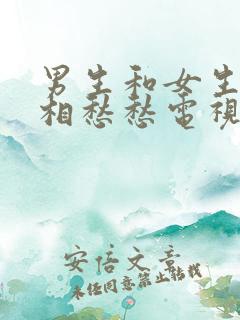 男生和女生
相愁愁電視
安信文章
未经同意禁止转载